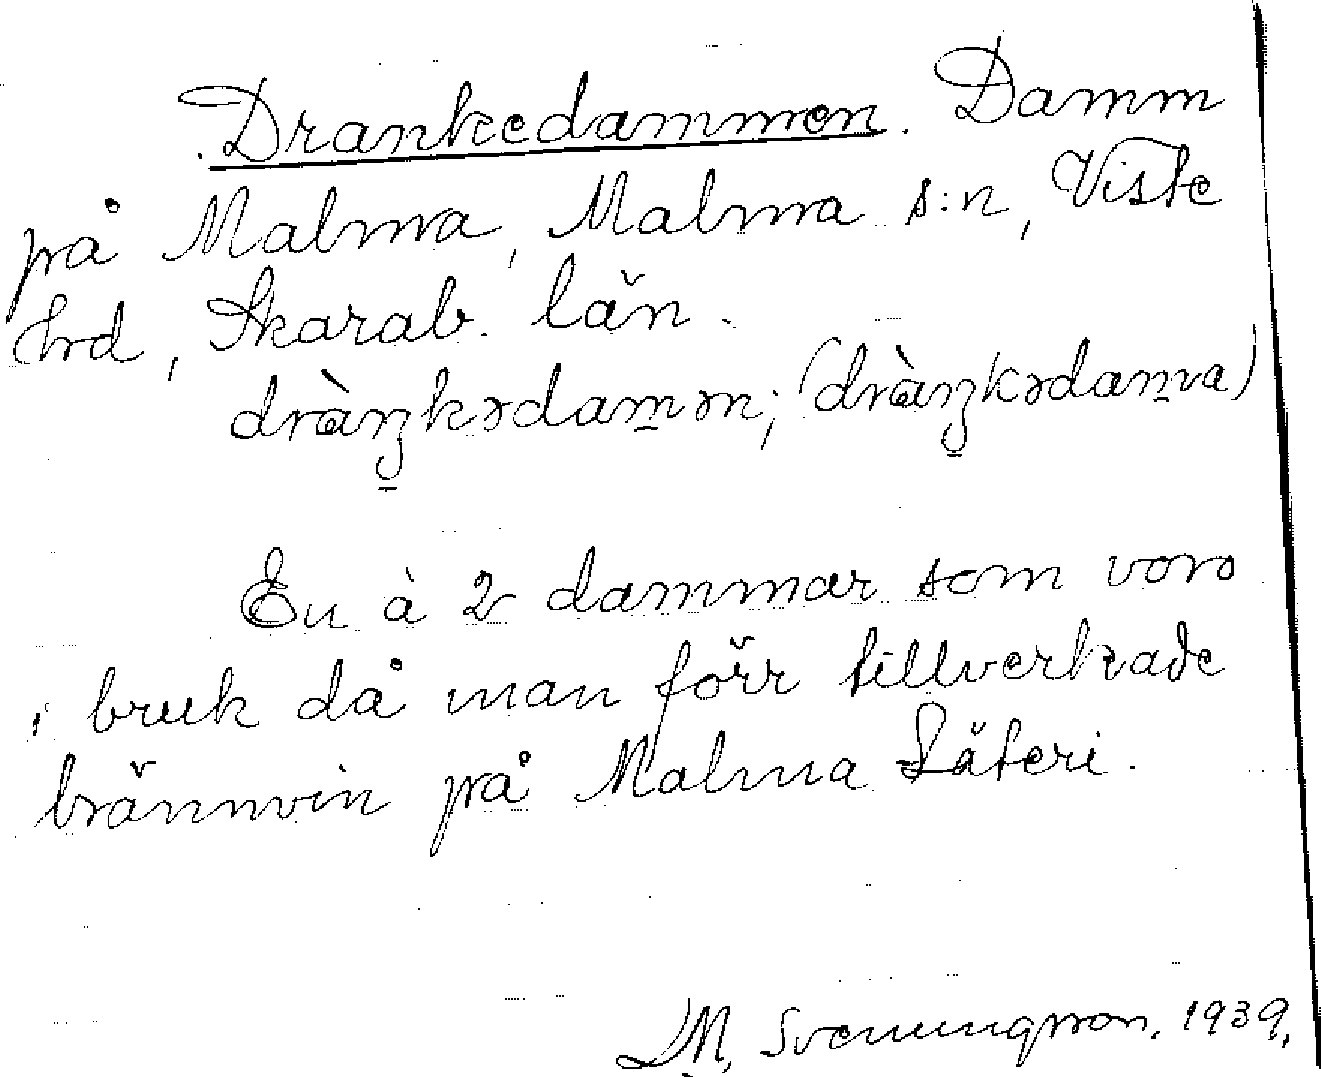 Drankedammen. Damm
på Malma, Malma s:n, Viste
hrd, Skarab. län.
dràŋkədam̲ən; (dràŋkədam̲a)
En à 2 dammar som voro
i bruk då man förr tillverkade
brännvin på Malma Säteri.
M. Svenungsson. 1939.